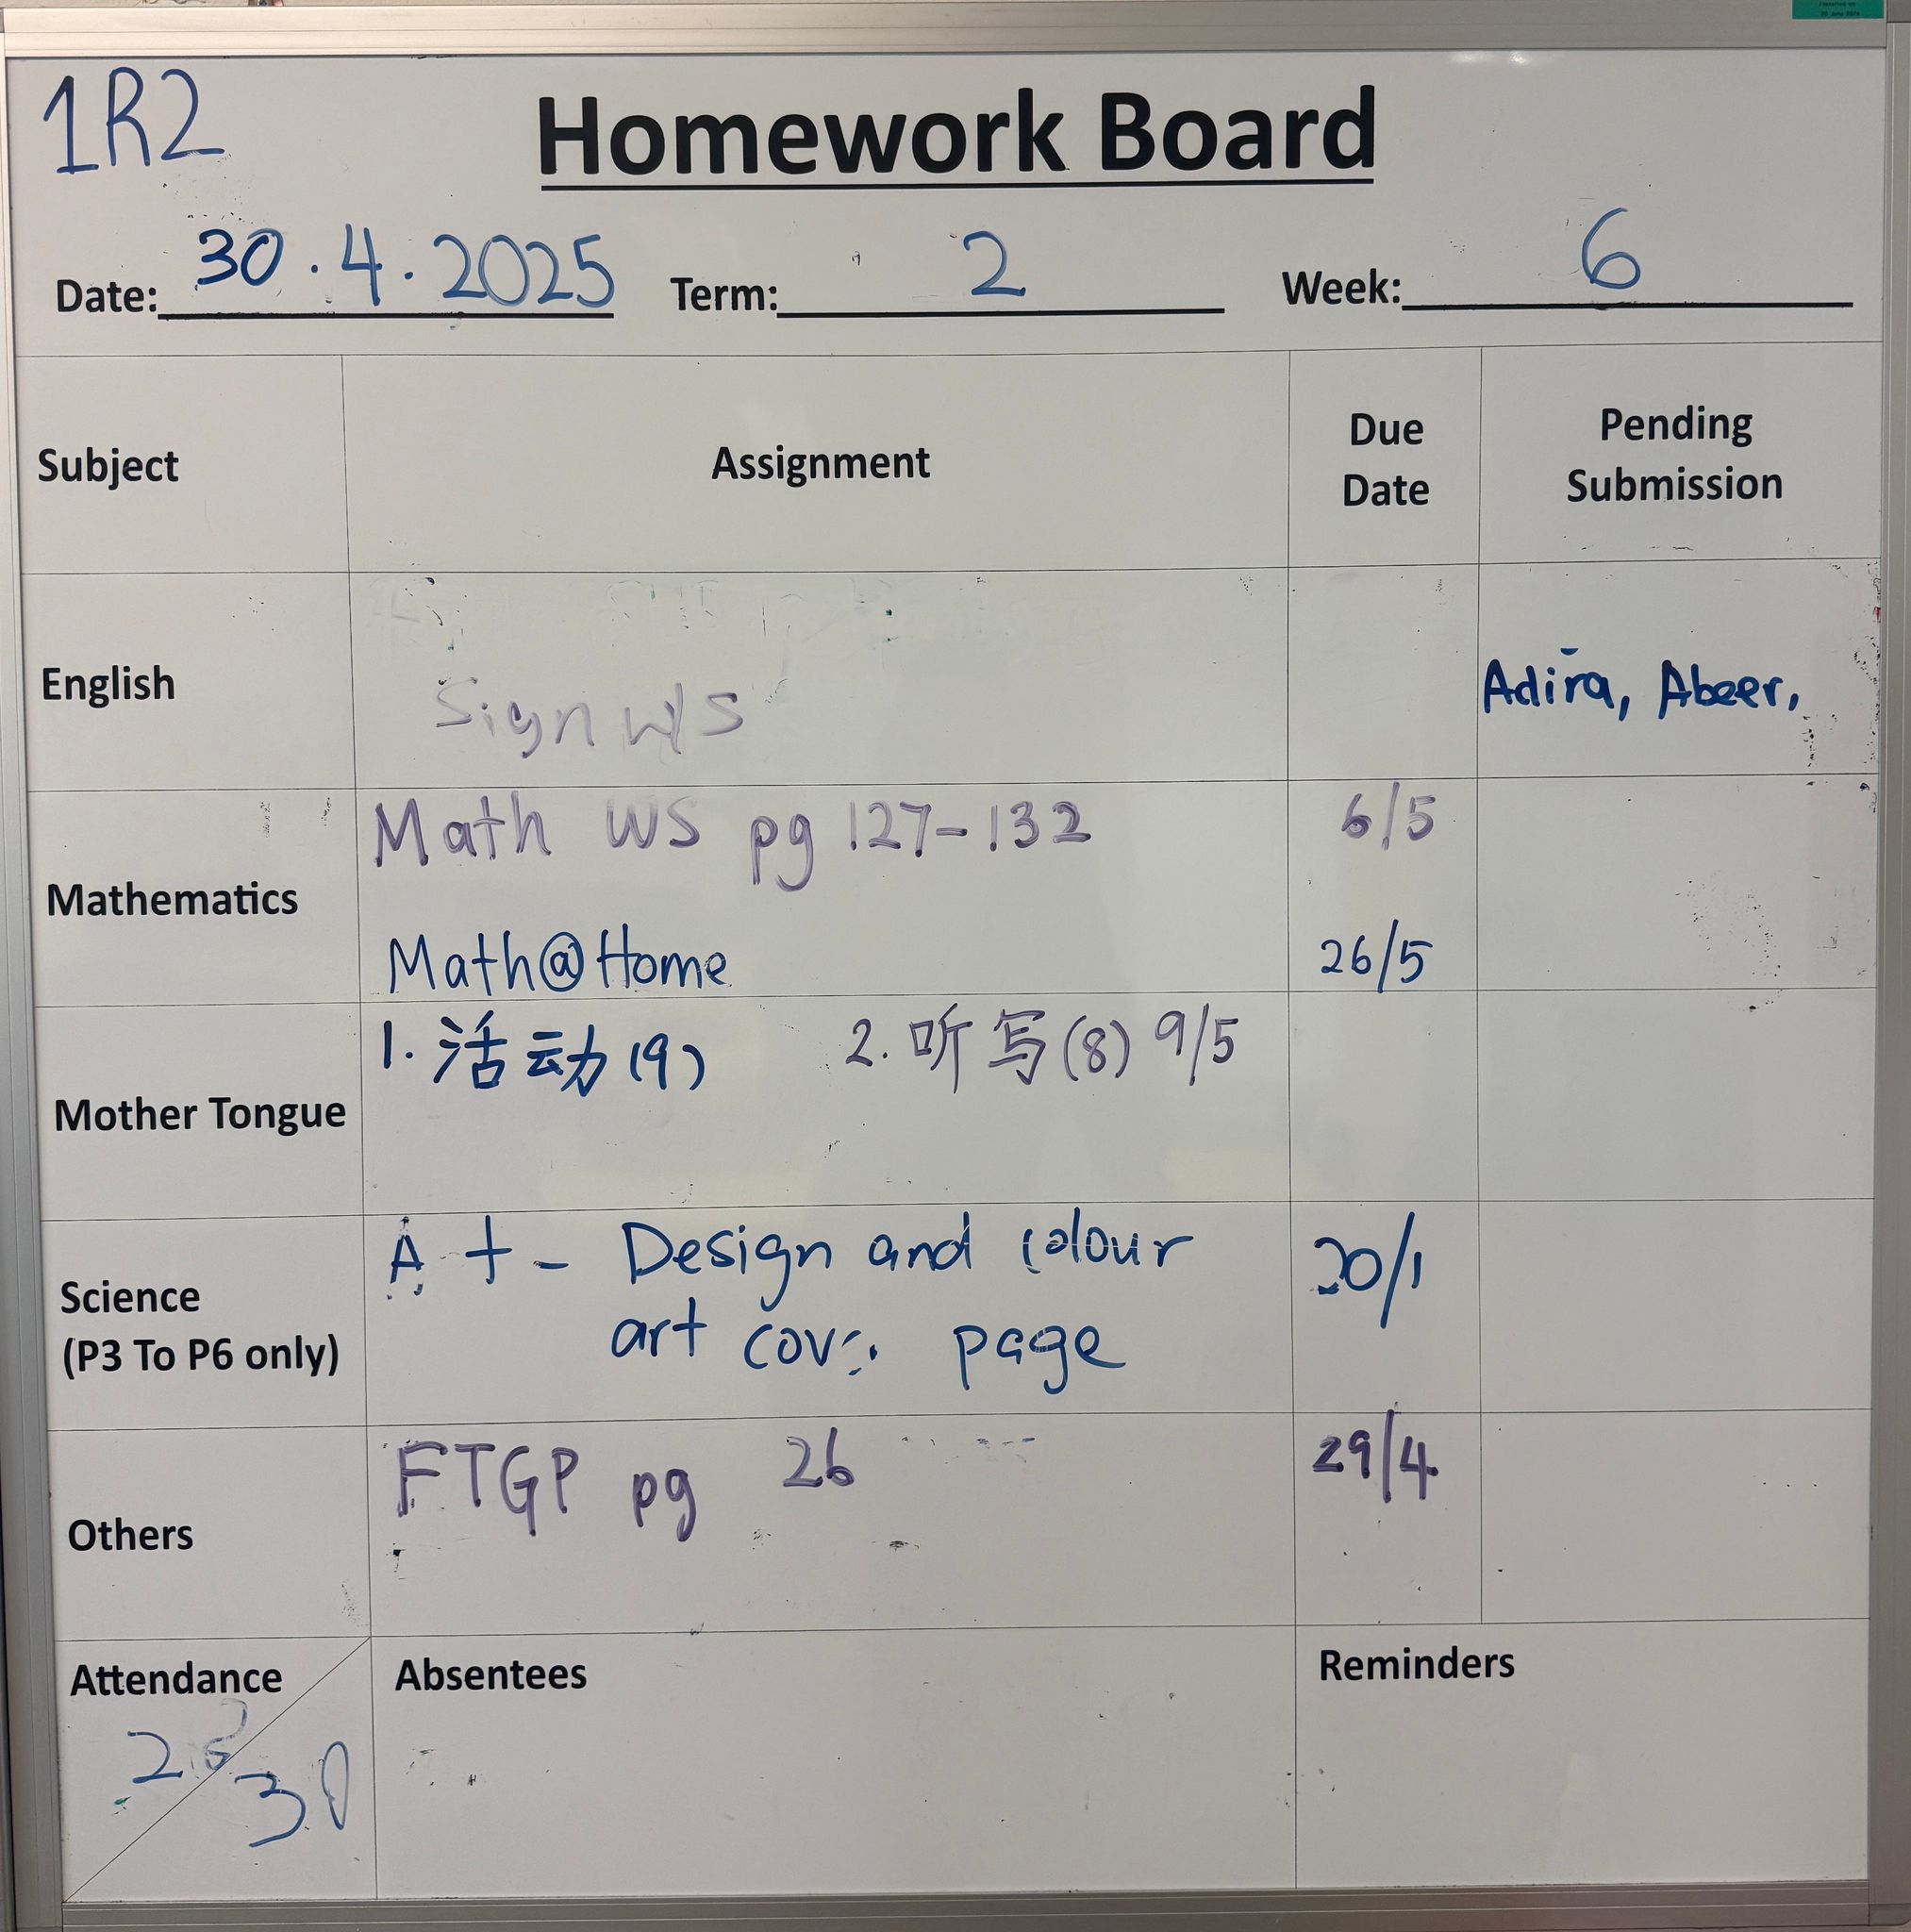 1R2
Homework Board
Date: 30.4.2025 Term: 2 Week: 6
Subject Assignment Due Date Pending Submission
English Sign WS Adira, Abeer,
Mathematics
Math WS pg 127-132 6/5
Math@Home 26/5
Mother Tongue
1. 活动(9) 2. 听写(8) 9/5
Science
(P3 To P6 only)
A t - Design and colour
art page
Others
FTGP pg 26 29/4
Attendance Absentees Reminders
30